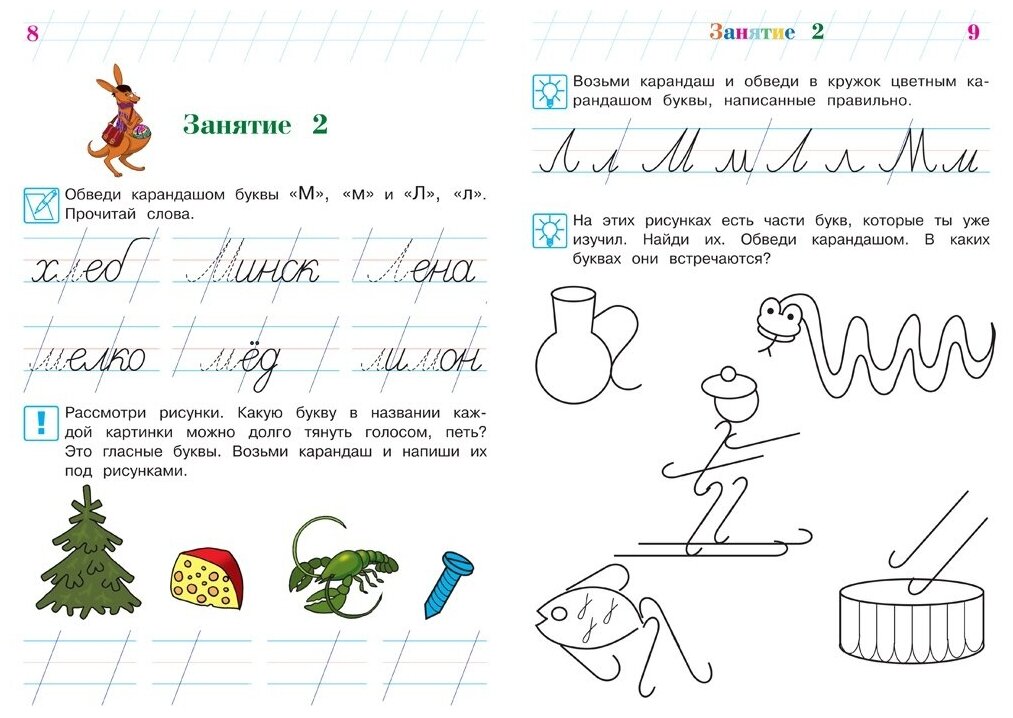 8
Занятие 2
Обведи карандашом буквы «М», «м» и «Л», «л».
Прочитай слова.
хлеб Минск Лена
мелко мёд лимон
Рассмотри рисунки. Какую букву в названии каж-
дой картинки можно долго тянуть голосом, петь?
Это гласные буквы. Возьми карандаш и напиши их
под рисунками.
Занятие 2
9
Возьми карандаш и обведи в кружок цветным ка-
рандашом буквы, написанные правильно.
Л л М м Л л М м
На этих рисунках есть части букв, которые ты уже
изучил. Найди их. Обведи карандашом. В каких
буквах они встречаются?